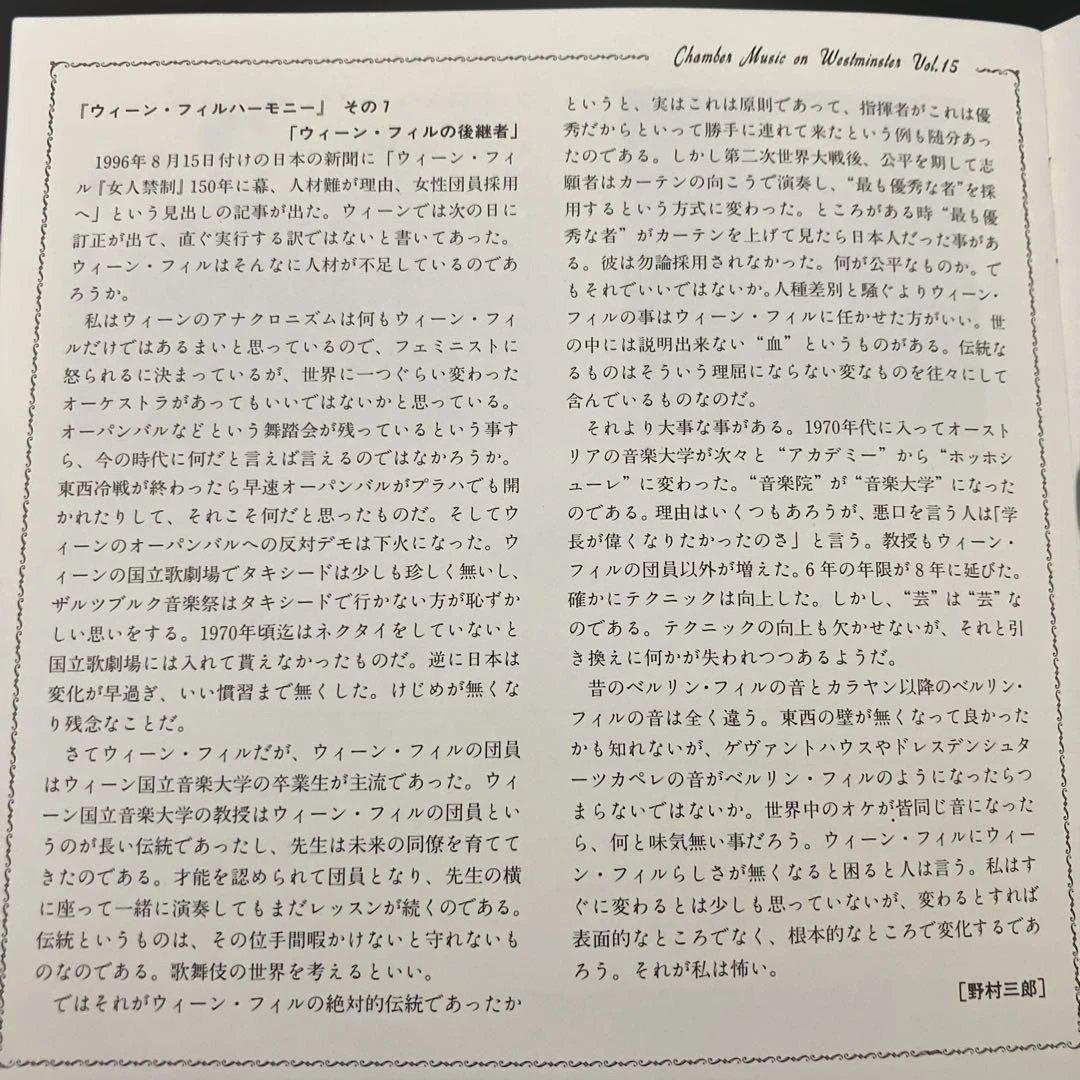 Chamber Music on Westminster Vol.15
『ウィーン・フィルハーモニー』 その1
「ウィーン・フィルの後継者」
1996年8月15日付けの日本の新聞に「ウィーン・フィ
ル『女人禁制』150年に幕、人材難が理由、女性団員採用
へ」という見出しの記事が出た。ウィーンでは次の日に
訂正が出て、直ぐ実行する訳ではないと書いてあった。
ウィーン・フィルはそんなに人材が不足しているのであ
ろうか。
私はウィーンのアナクロニズムは何もウィーン・フィ
ルだけではあるまいと思っているので、フェミニストに
怒られるに決まっているが、世界に一つぐらい変わった
オーケストラがあってもいいではないかと思っている。
オーパンバルなどという舞踏会が残っているという事す
ら、今の時代に何だと言えば言えるのではなかろうか。
東西冷戦が終わったら早速オーパンバルがプラハでも開
かれたりして、それこそ何だと思ったものだ。そしてウ
ィーンのオーパンバルへの反対デモは下火になった。ウ
ィーンの国立歌劇場でタキシードは少しも珍しく無いし、
ザルツブルク音楽祭はタキシードで行かない方が恥ずか
しい思いをする。1970年頃迄はネクタイをしていないと
国立歌劇場には入れて貰えなかったものだ。逆に日本は
変化が早過ぎ、いい慣習まで無くした。けじめが無くな
り残念なことだ。
さてウィーン・フィルだが、ウィーン・フィルの団員
はウィーン国立音楽大学の卒業生が主流であった。ウィ
ーン国立音楽大学の教授はウィーン・フィルの団員とい
うのが長い伝統であったし、先生は未来の同僚を育てて
きたのである。才能を認められて団員となり、先生の横
に座って一緒に演奏してもまだレッスンが続くのである。
伝統というものは、その位手間暇かけないと守れないも
のなのである。歌舞伎の世界を考えるといい。
ではそれがウィーン・フィルの絶対的伝統であったか
というと、実はこれは原則であって、指揮者がこれは優
秀だからといって勝手に連れて来たという例も随分あっ
たのである。しかし第二次世界大戦後、公平を期して志
願者はカーテンの向こうで演奏し、“最も優秀な者”を採
用するという方式に変わった。ところがある時“最も優
秀な者”がカーテンを上げて見たら日本人だった事があ
る。彼は勿論採用されなかった。何が公平なものか。で
もそれでいいではないか。人種差別と騒ぐよりウィーン・
フィルの事はウィーン・フィルに任かせた方がいい。世
の中には説明出来ない“血”というものがある。伝統な
るものはそういう理屈にならない変なものを往々にして
含んでいるものなのだ。
それより大事な事がある。1970年代に入ってオースト
リアの音楽大学が次々と“アカデミー”から“ホッホシ
ューレ”に変わった。“音楽院”が“音楽大学”になった
のである。理由はいくつもあろうが、悪口を言う人は「学
長が偉くなりたかったのさ」と言う。教授もウィーン・
フィルの団員以外が増えた。6年の年限が8年に延びた。
確かにテクニックは向上した。しかし、“芸”は“芸”な
のである。テクニックの向上も欠かせないが、それと引
き換えに何かが失われつつあるようだ。
昔のベルリン・フィルの音とカラヤン以降のベルリン・
フィルの音は全く違う。東西の壁が無くなって良かった
かも知れないが、ゲヴァントハウスやドレスデンシュタ
ーツカペレの音がベルリン・フィルのようになったらつ
まらないではないか。世界中のオケが皆同じ音になった
ら、何と味気無い事だろう。ウィーン・フィルにウィー
ン・フィルらしさが無くなると困ると人は言う。私はす
ぐに変わるとは少しも思っていないが、変わるとすれば
表面的なところでなく、根本的なところで変化するであ
ろう。それが私は怖い。
[野村三郎]